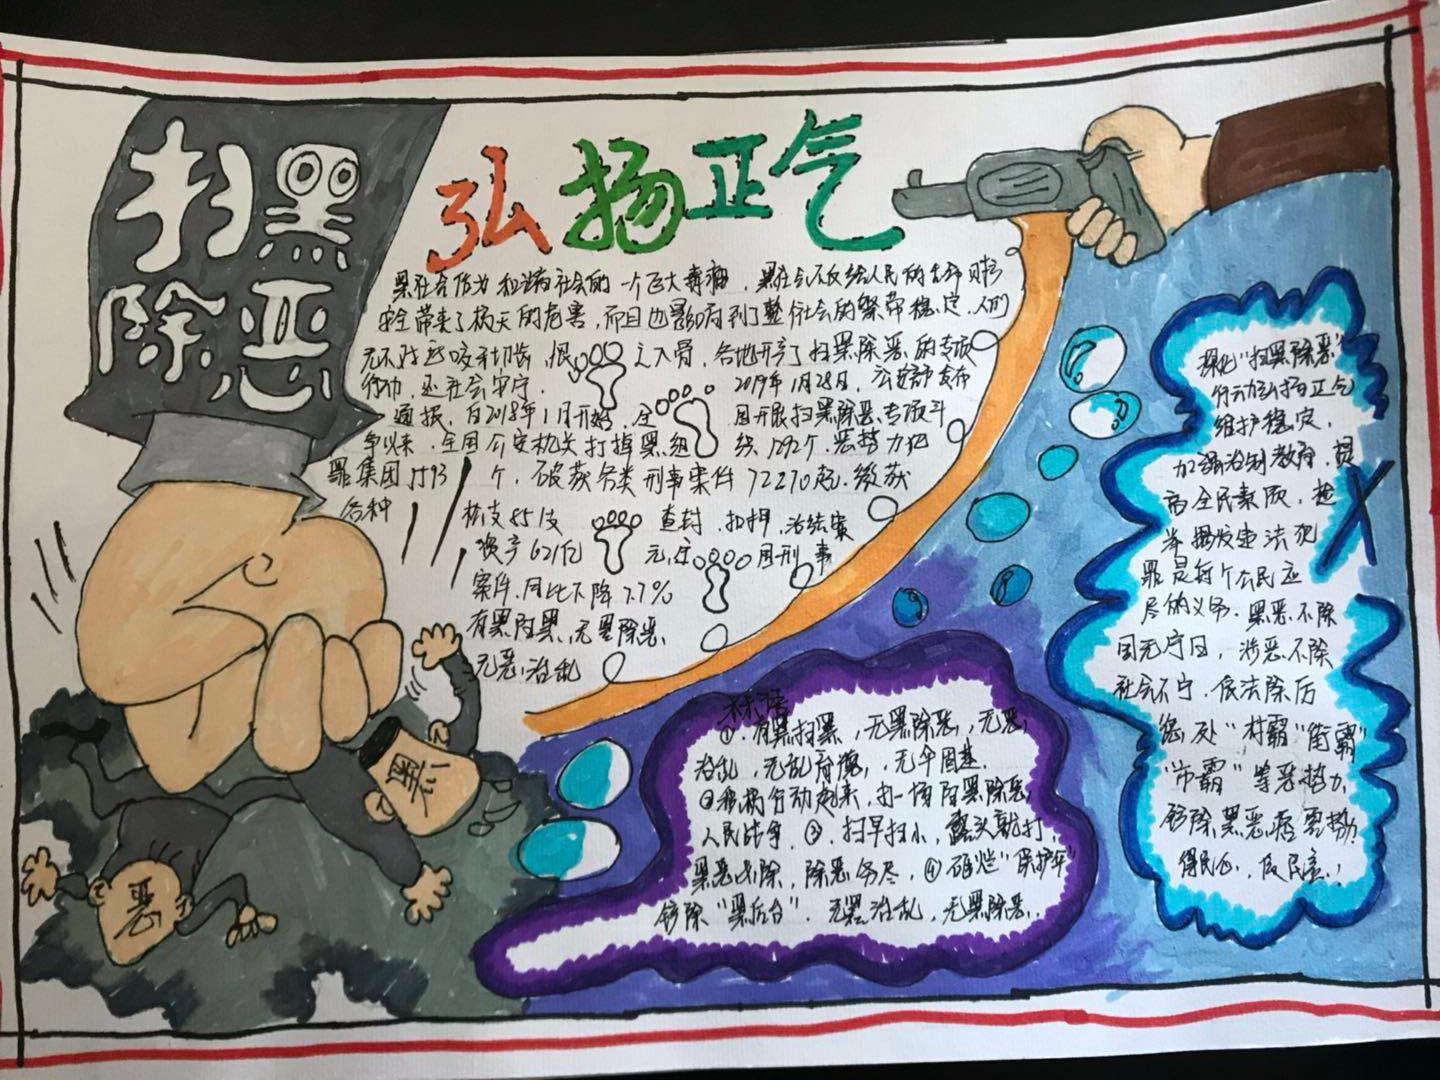 扫黑
除恶
弘扬正气
黑社会作为和谐社会的一个巨大毒瘤，黑社会不仅给人民的生命财
安全带来了极大的危害，而且也影响到了整个社会的繁荣稳定，人们
无不对这咬牙切齿，恨之入骨，各地开了扫黑除恶的专项
行动，还社会安宁.
2019年1月28日，公安部发布
通报，自2018年1月开始，全国开展扫黑除恶专项斗
争以来，全国公安机关打掉黑组织1292个，恶势力犯
罪集团5593个，破获各类刑事案件72270起，缴获
各种枪支851支
查封，扣押，冻结
资产621亿元，全国刑事
案件，同比下降7.7%
有黑扫黑，无黑除恶，
无恶治乱
标语
①.有黑扫黑，无黑除恶，无恶
治乱，无乱，无伞固基.
②积极行动起来，打一场扫黑除恶
人民战争 ③.扫早扫小，露头就打，
黑恶必除，除恶务尽，④砸烂“保护伞”
铲除“黑后台”，无黑治乱，无黑除恶.
深化“扫黑除恶”
行动弘扬正气
维护稳定，
加强法制教育，提
高全民素质，检
举揭发违法犯
罪是每个公民应
尽的义务. 黑恶不除
国无宁日，涉恶不除
社会不宁. 依法除厉
惩处“村霸”“街霸”
“市霸”等恶势力
铲除黑恶
得民心，
黑
恶